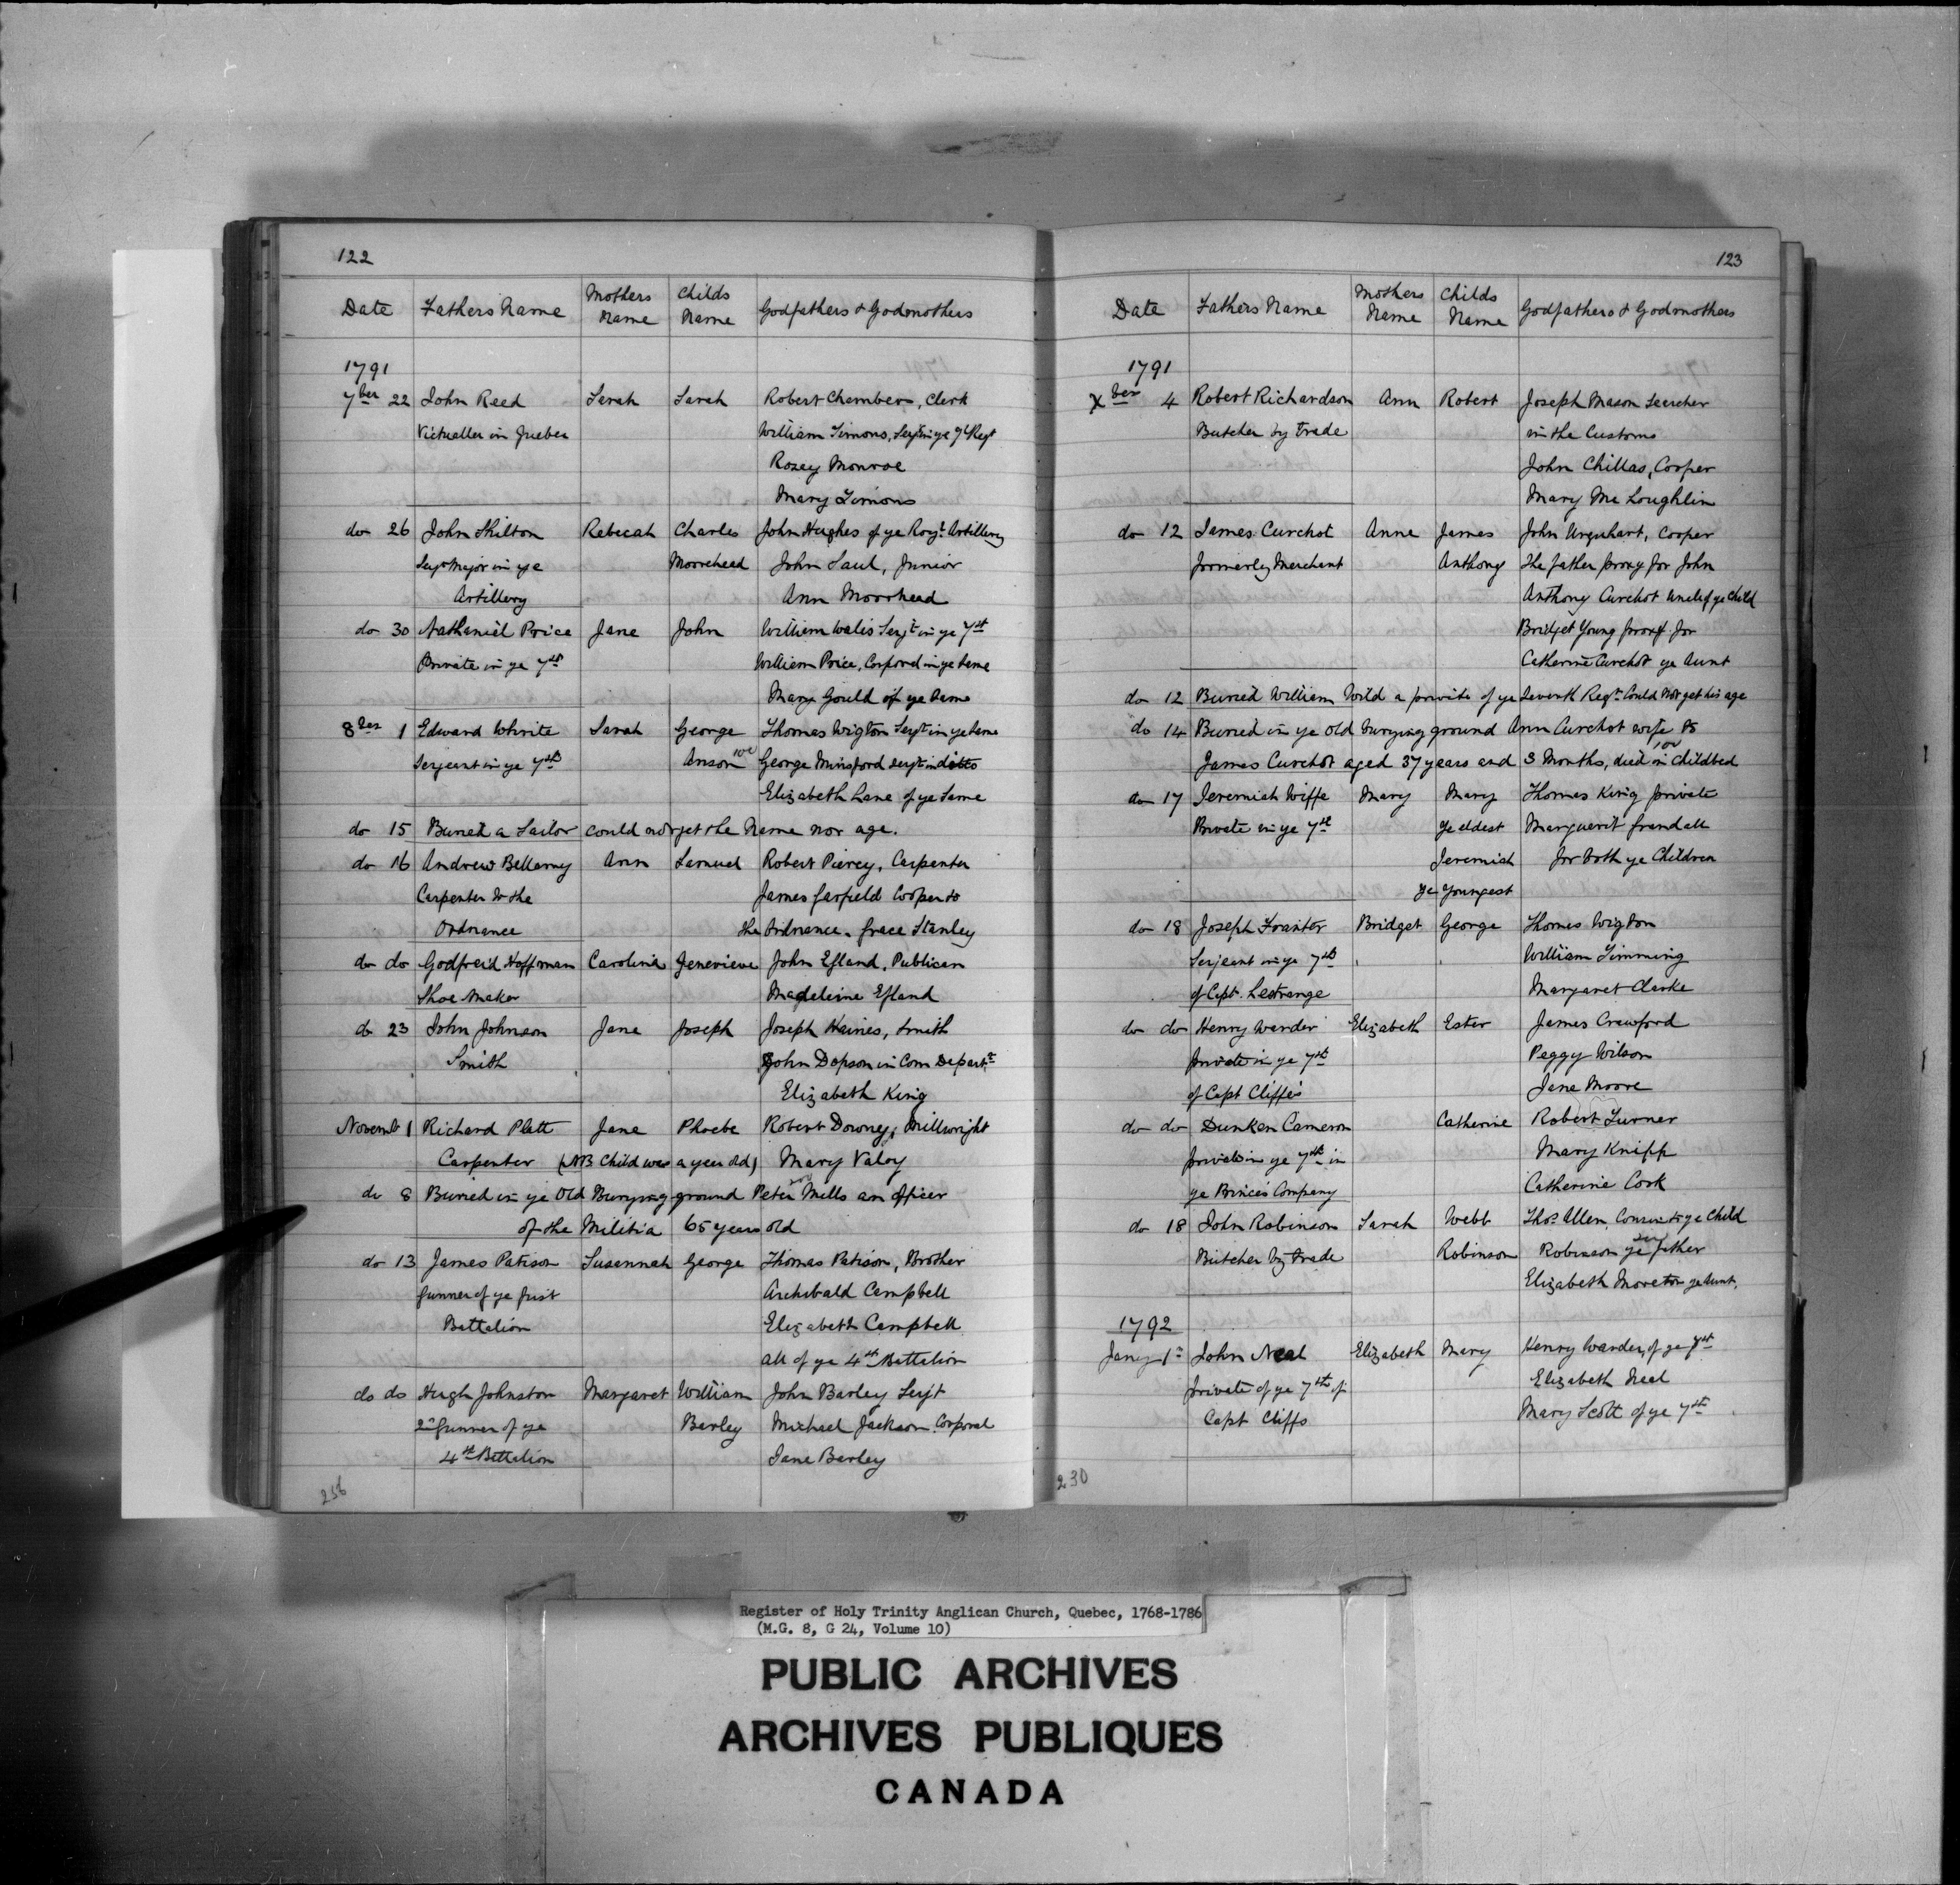 122
Date Fathers Name Mothers Name Childs Name Godfathers & Godmothers
1791
7ber 22 John Reed Sarah Sarah Robert Chambers, Clerk
Victualler in Quebec William Simons, Serjt in ye 7th Regt
Rosey Monroe
Mary Simons
do 26 John Shilton Rebecah Charles John Hughes of ye Royl Artillery
Serjt Major in ye Moorehead John Saul, Junior
Artillery Ann Moorhead
do 30 Nathaniel Price Jane John William Walis Serjt in ye 7st
Private in ye 7th William Price, Corporal in ye Same
Mary Gould of ye Same
8ber 1 Edward White Sarah George Thomas Wigton Serjt in ye Same
Serjeant in ye 7th Anson George Minsford Serjt in ditto
Elizabeth Lane of ye Same
do 15 Buried a Sailor could not get the Name nor age.
do 16 Andrew Bellamy Ann Samuel Robert Piercy, Carpenter
Carpenter to the James Garfield Cooper to
Ordnance the Ordnance. Grace Stanley
do do Godfreid Hoffman Carolina Genevieve John Efland, Publican
Shoe Maker Madeleine Efland
do 23 John Johnson Jane Joseph Joseph Haines, Smith
Smith John Dopson in Com Depart.
Elizabeth King
Novembr 1 Richard Platt Jane Phoebe Robert Downey, Millwright
Carpenter (NB Child was a year old) Mary Valoy
do 8 Buried in ye Old Burying ground Peter Mills an officer
of the Militia 65 years old
do 13 James Patison Susannah George Thomas Patison, Brother
Gunner of ye first Archibald Campbell
Battalion Elizabeth Campbell
all of ye 4th Battalion
do do Hugh Johnston Margaret William John Barley Serjt
2n Gunner of ye Barley Michael Jackson Corporal
4th Battalion Jane Barley
123
Date Fathers Name Mothers Name Childs Name Godfathers & Godmothers
1791
Xber 4 Robert Richardson Ann Robert Joseph Mason Searcher
Butcher by trade in the Customs
John Chillas, Cooper
Mary Mc Loughlin
do 12 James Curchot Anne James John Urquhart, Cooper
formerly Merchant Anthony The father proxy for John
Anthony Curchot Uncle of ye Child
Bridget Young proxy for
Catherine Curchot ye Aunt
do 12 Buried William Wild a private of ye Seventh Regt. Could not get his age
do 14 Buried in ye Old burying ground Ann Curchot wife to
James Curchot aged 37 years and 3 Months, died in Childbed
do 17 Jeremiah Wiffe Mary Mary Thomas King private
Private in ye 7th ye eldest Marguerit Grandall
Jeremiah for both ye Children
ye youngest
do 18 Joseph Franter Bridget George Thomas Wigton
Serjeant in ye 7th William Timming
of Capt. Lestrange Margaret Clarke
do do Henry Warder Elizabeth Ester James Crawford
private in ye 7th Peggy Wilson
of Capt Cliffes Jane Moore
do do Dunken Cameron Catherine Robert Turner
private in ye 7th in Mary Knipp
ye Princes Company Catherine Cook
do 18 John Robinson Sarah Webb Thos. Allen, Cousin to ye Child
Butcher by trade Robinson Robinson ye father
Elizabeth Moreton ye Aunt.
1792
Jany 1st John Neal Elizabeth Mary Henry Warder, of ye 7th
private of ye 7th of Elizabeth Neal
Capt Cliffs Mary Scott of ye 7th
230
Register of Holy Trinity Anglican Church, Quebec, 1768-1786
(M.G. 8, G 24, Volume 10)
PUBLIC ARCHIVES
ARCHIVES PUBLIQUES
CANADA